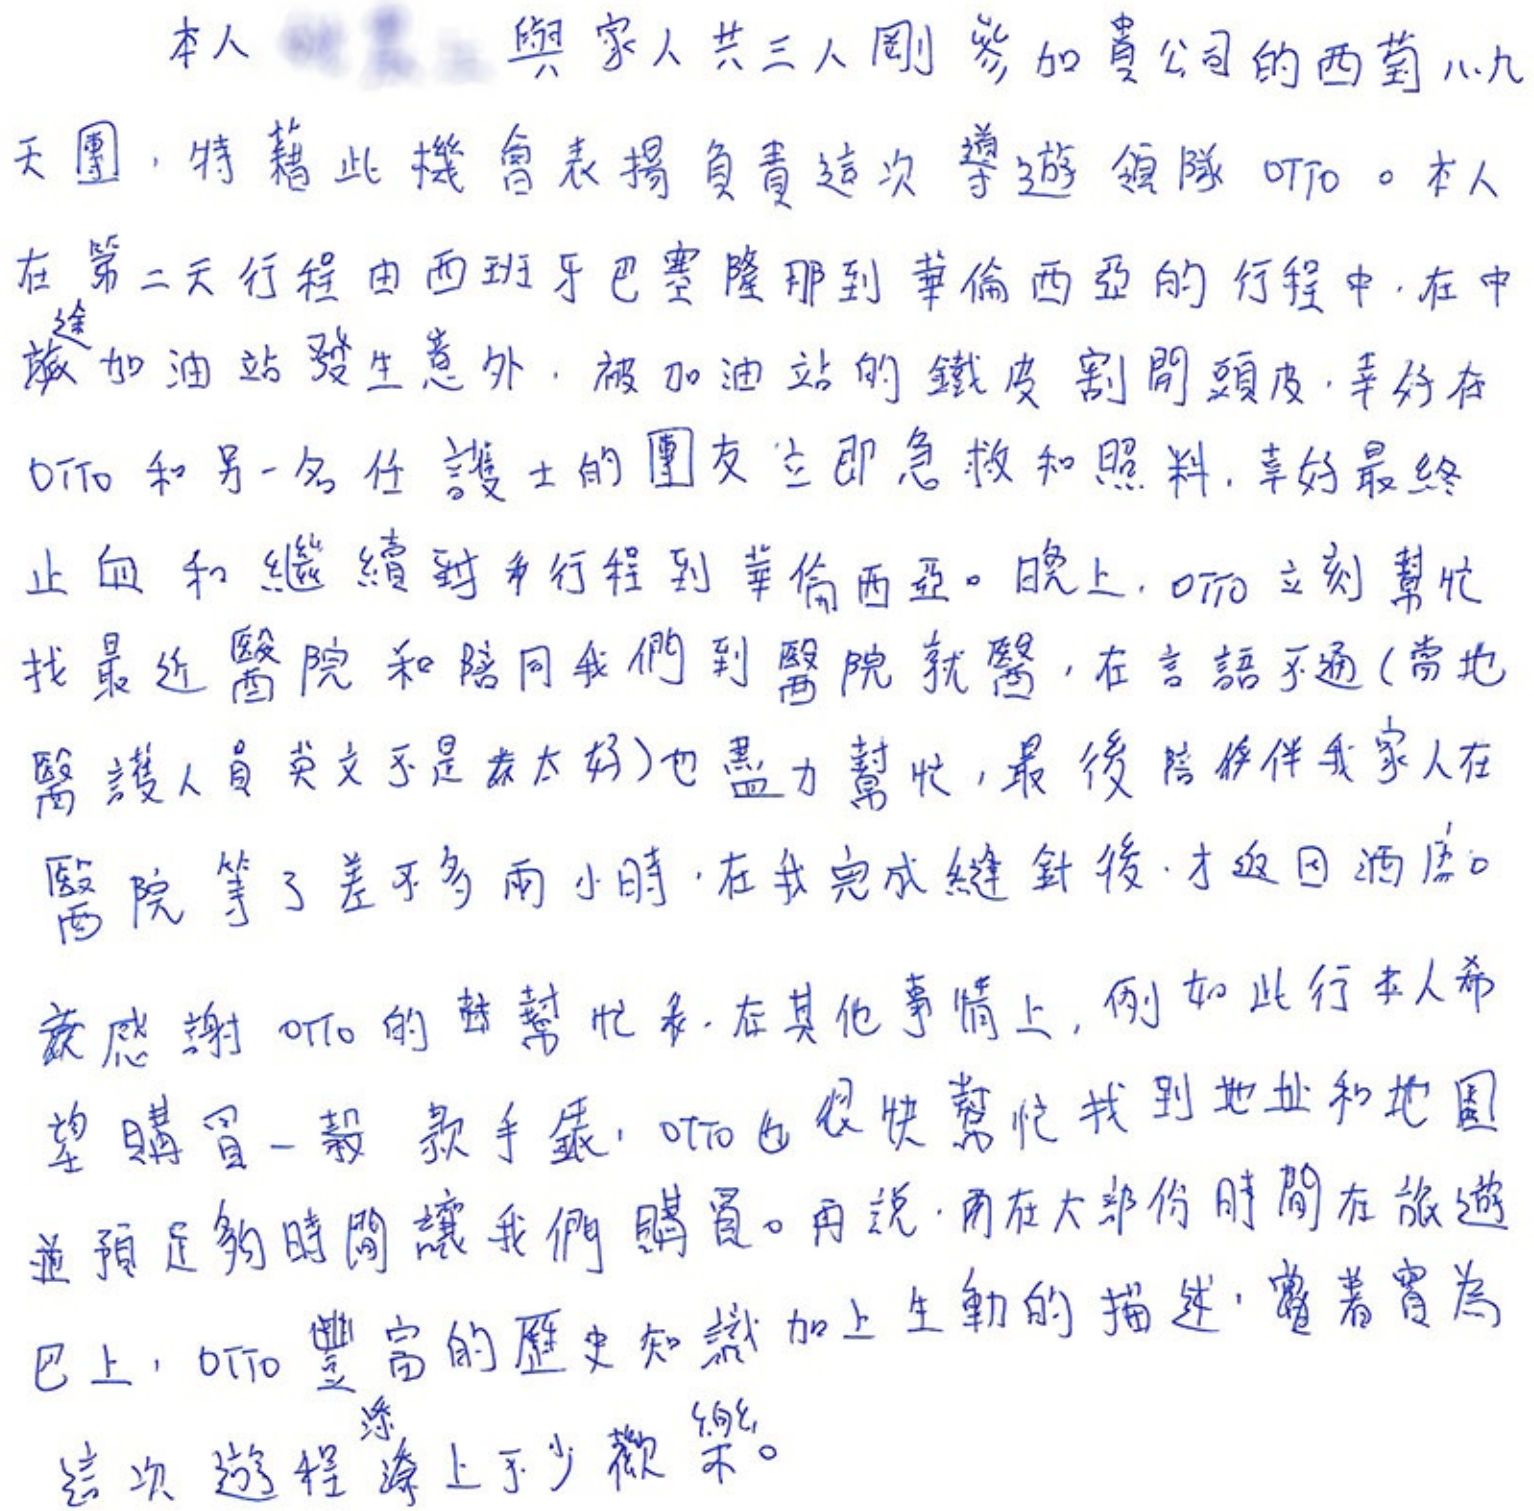 本人 與家人共三人剛參加貴公司的西葡八九
天團，特藉此機會表揚負責這次導遊領隊OTTO。本人
在第二天行程由西班牙巴塞隆那到華倫西亞的行程中，在中
途加油站發生意外，被加油站的鐵皮割開頭皮，幸好在
OTTO和另一名任護士的團友立即急救和照料，幸好最終
止血和繼續行程到華倫西亞。晚上，OTTO立刻幫忙
找最近醫院和陪同我們到醫院就醫，在言語不通(當地
醫護人員英文不是太好)也盡力幫忙，最後陪伴我家人在
醫院等了差不多兩小時，在我完成縫針後，才返回酒店。
感謝OTTO的幫忙，在其他事情上，例如此行本人希
望購買一款手錶，OTTO也很快幫忙找到地址和地圖
並預足夠時間讓我們購買。再說，在大部份時間在旅遊
巴上，OTTO豐富的歷史知識加上生動的描述，著實為
這次遊程添上不少歡樂。